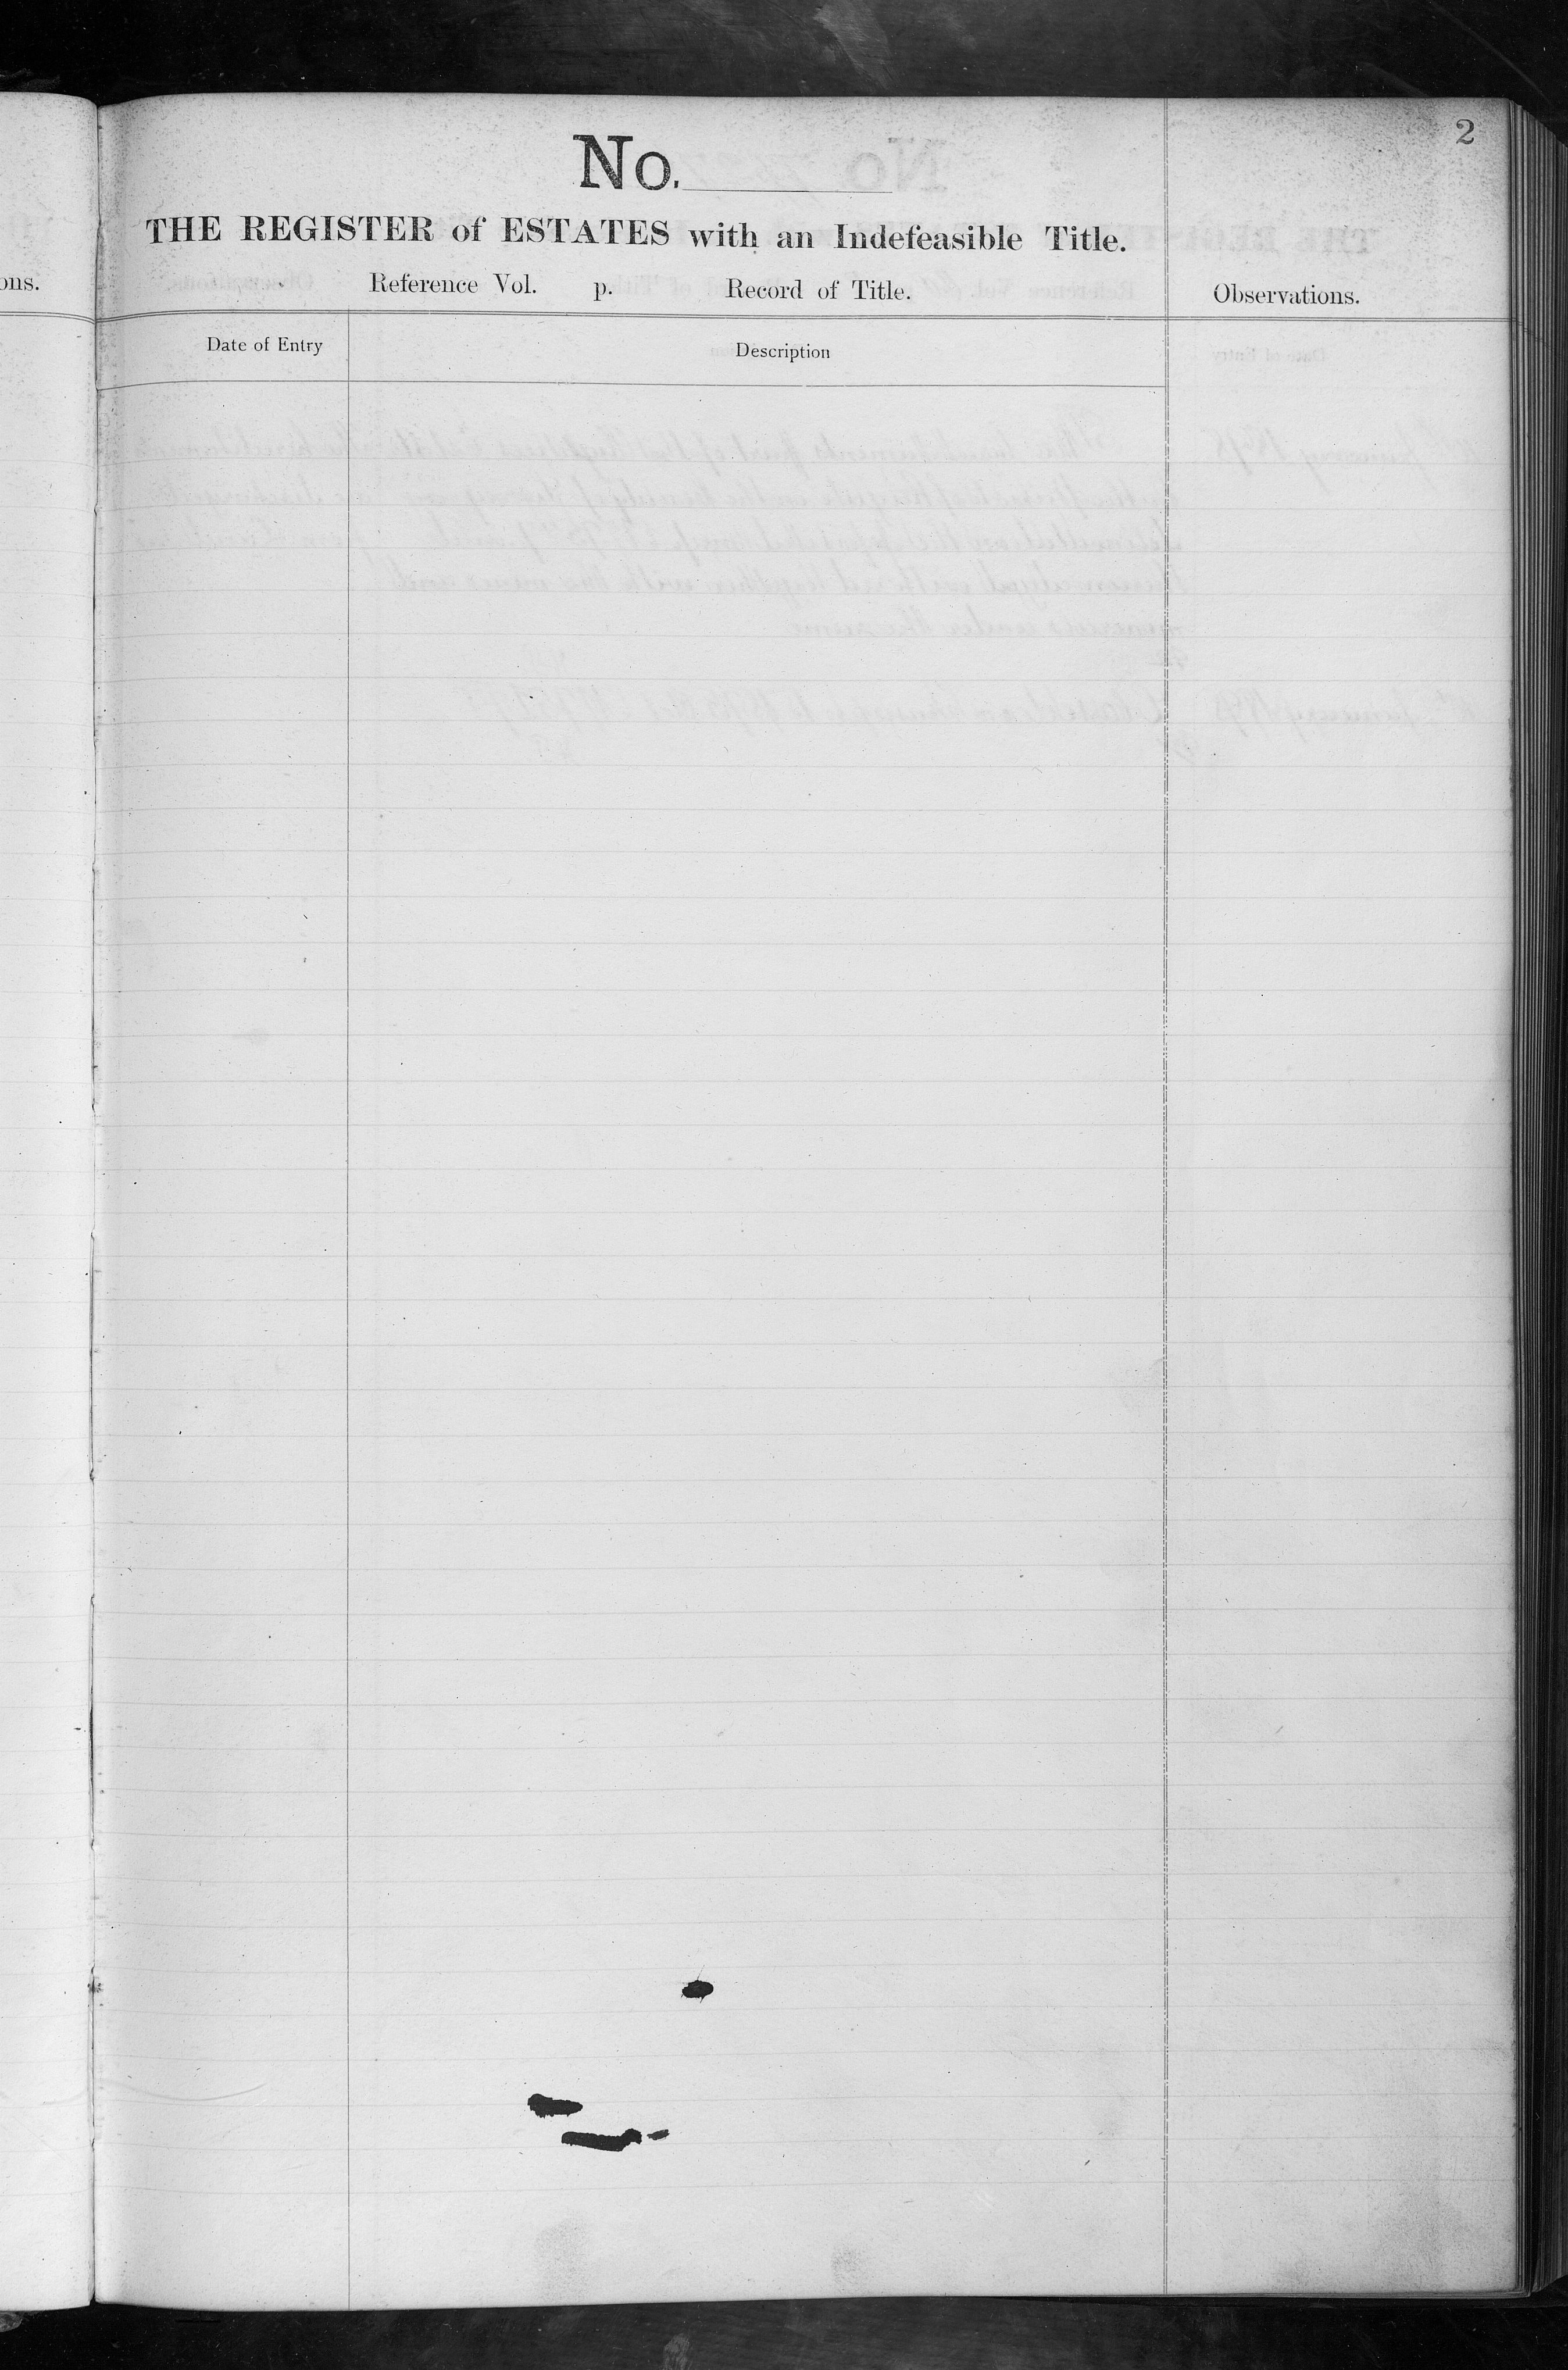 2
No.
THE REGISTER of ESTATES with an Indefeasible Title.
ons.
Reference Vol. p. Record of Title.
Observations.
Date of Entry
Description